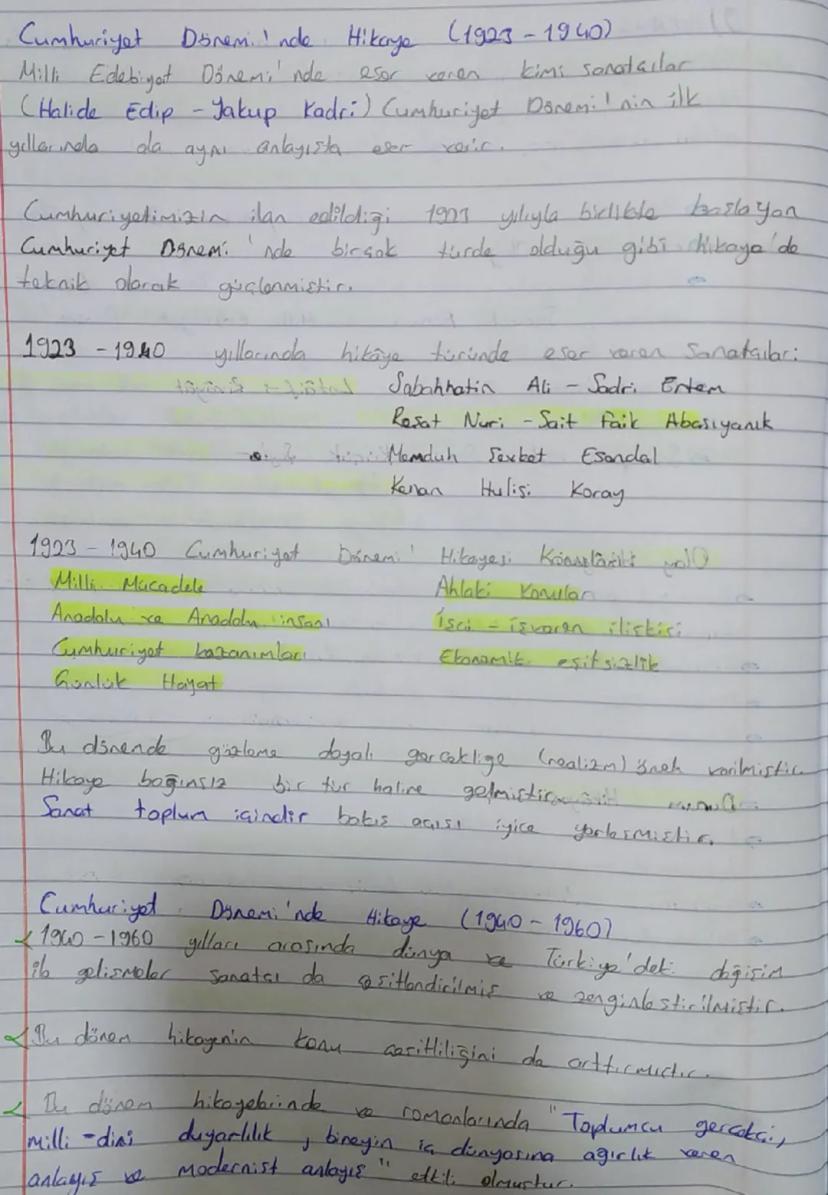 Cumhuriyet Dönemi'nde Hikaye (1923-1940)
Milli Edebiyat Dönemi'nde eser veren kimi sanatçılar
(Halide Edip - Yakup Kadri) Cumhuriyet Dönemi'nin ilk
yıllarında da aynı anlayışta eser verir.
Cumhuriyetimizin ilan edildiği 1923 yılıyla birlikte başlayan
Cumhuriyet Dönemi'nde birçok türde olduğu gibi hikaye'de
teknik olarak güçlenmiştir.
1923-1940 yıllarında hikâye türünde eser veren sanatçılar:
Sabahhatin Ali - Sadri Ertem
Reşat Nuri - Sait Faik Abasıyanık
Memduh Şevket Esendal
Kenan Hulisi Koray
1923-1940 Cumhuriyet Dönemi Hikayesi Konuları
Milli Mücadele Ahlaki Konular
Anadolu ve Anadolu insanı İşçi - işveren ilişkisi
Cumhuriyet kazanımları Ekonomik eşitsizlik
Günlük Hayat
Bu dönemde gözleme dayalı gerçekliğe (realizm) önem verilmiştir.
Hikaye bağımsız bir tür haline gelmiştir
Sanat toplum içindir bakış açısı iyice yerleşmiştir.
Cumhuriyet Dönemi'nde Hikaye (1940-1960)
1940-1960 yılları arasında dünya ve Türkiye'deki değişim
ile gelişmeler sanatçı da çeşitlendirilmiş ve zenginleştirilmiştir.
Bu dönem hikayenin konu çeşitliliğini de arttırmıştır.
Bu dönem hikayelerinde ve romanlarında "Toplumcu gerçekçi,
milli-dini duyarlılık, bireyin iç dünyasına ağırlık veren
anlayış ve Modernist anlayış" etkili olmuştur.